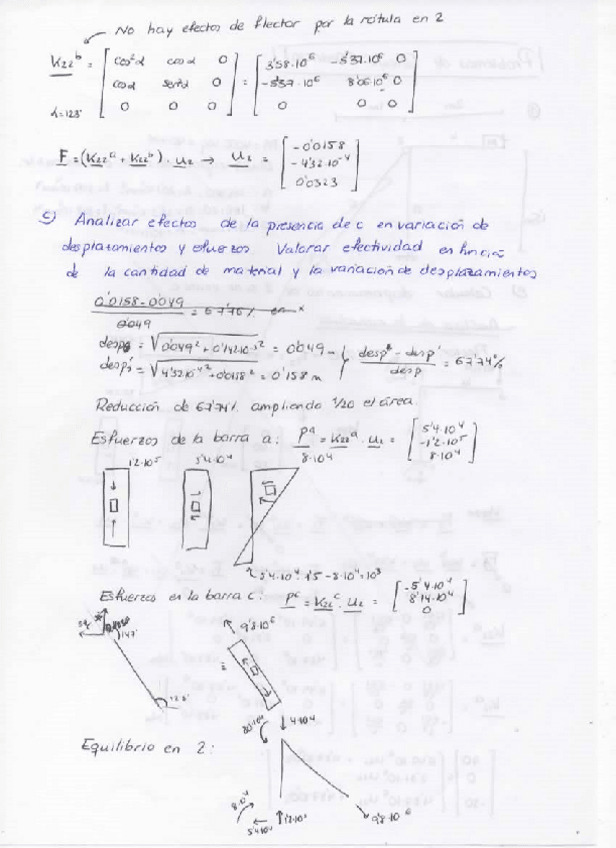 No hay efectos de flector por la rótula en 2
K22ᵇ = [cos²α cosα 0; cosα sen²α 0; 0 0 0] = [3'58·10⁶ -5'37·10⁶ 0; -5'37·10⁶ 8'06·10⁶ 0; 0 0 0]
F = (K22ᵃ + K22ᵇ)·U2 → U2 = [-0'0158; -4'32·10⁻⁴; 0'0323]
Analizar efectos de la presencia de c en variación de
desplazamientos y esfuerzos. Valorar efectividad en función
de la cantidad de material y la variación de desplazamientos
0'0158-0'049
0'049
= 0'049
= 0'158 m
desp - desp'
desp
= 67'74%
Reducción de 67'74% ampliando 1/20 el área.
Esfuerzos de la barra a: Pᵃ = K22ᵃ · U2 = [5'4·10⁴; -1'2·10⁵; 8·10⁴]
8·10⁴
1'2·10⁵ 5'4·10⁴
5'4·10⁴ · 1'5 - 8·10⁴ = 10³
Esfuerzos en la barra c: Pᶜ = K22ᶜ · U2 = [-5'4·10⁴; 8'14·10⁴; 0]
9'8·10⁶
4·10⁴
Equilibrio en 2:
8·10⁴
5'4·10⁴
9'8·10⁶